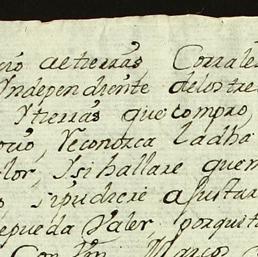 ció de tierras Corrale
Independiente delos tre
Ytierras que compro,
ocio, reconosca ladha
lor, Isi hallare quem
sipudiere ajustar
epueda valer porquit
Con Dn Marcos